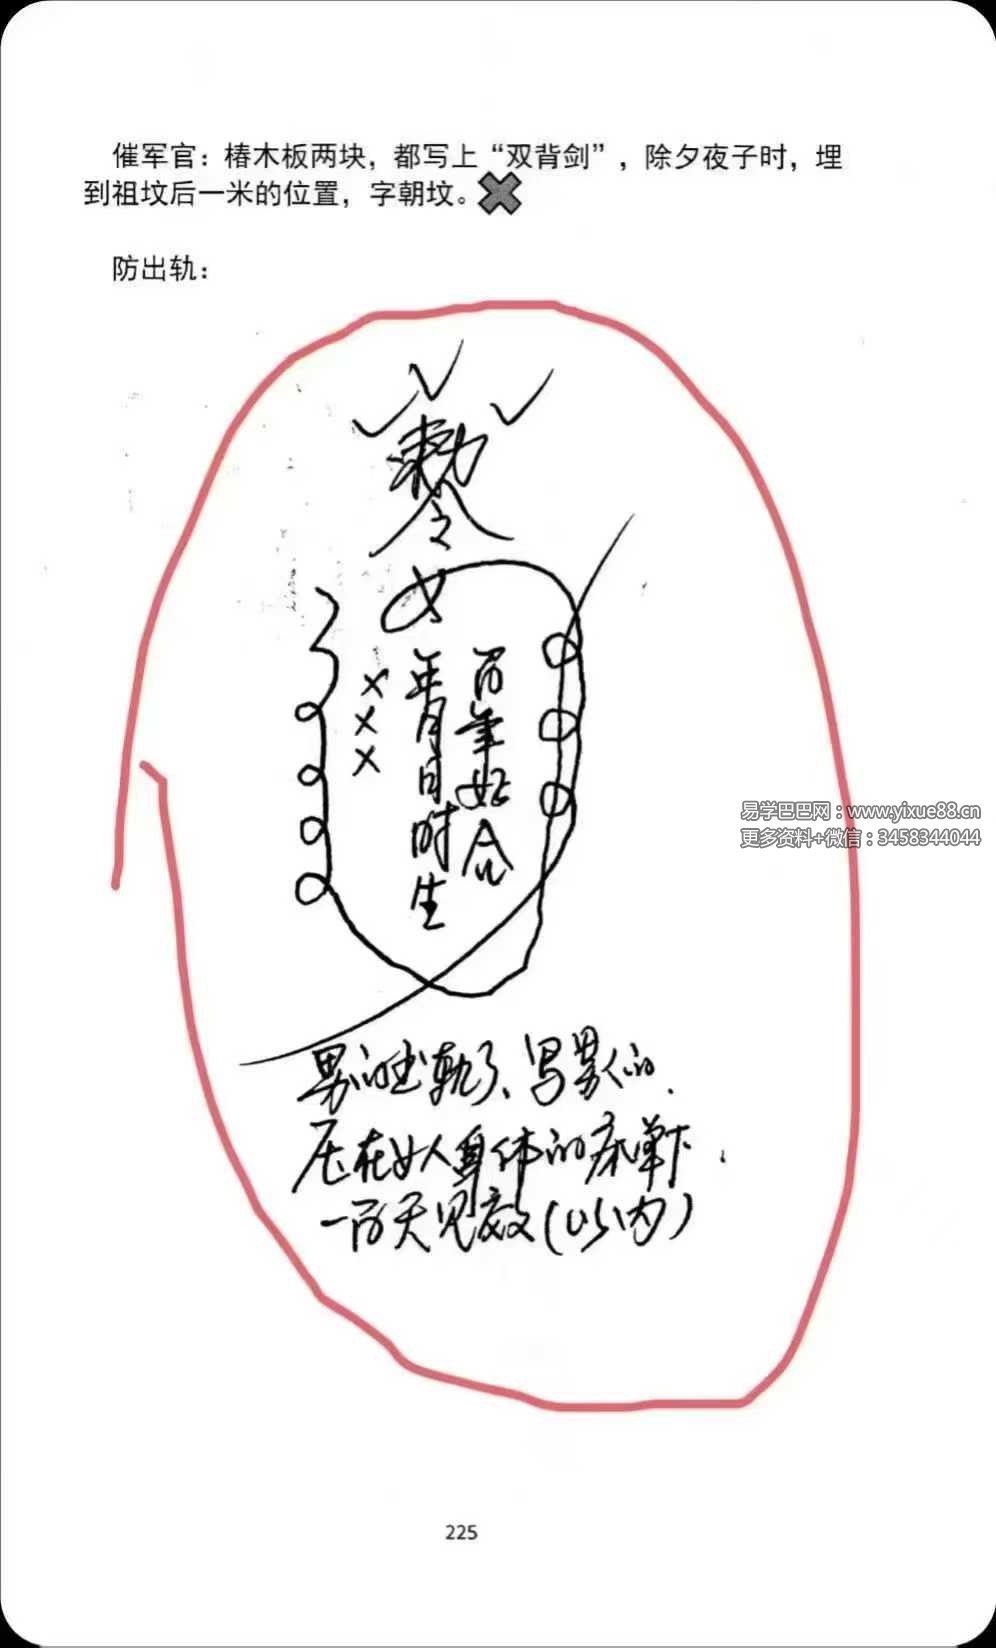 催军官：椿木板两块，都写上“双背剑”，除夕夜子时，埋
到祖坟后一米的位置，字朝坟。
防出轨：
敕
令
女
×××
年月日时生
百年好合
易学巴巴网：www.yixue88.cn
更多资料+微信：3458344044
男的出轨了、写男人的.
压在女人身体的床单下.
一百天见效(以内)
225